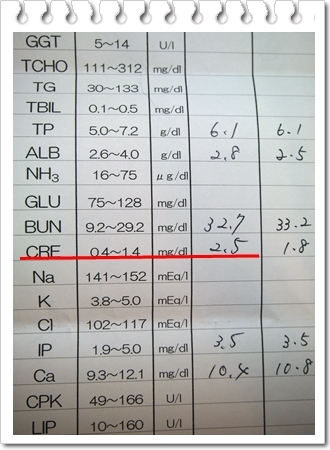 GGT 5~14 U/l
TCHO 111~312 mg/dl
TG 30~133 mg/dl
TBIL 0.1~0.5 mg/dl
TP 5.0~7.2 g/dl 6.1 6.1
ALB 2.6~4.0 g/dl 2.8 2.5
NH₃ 16~75 μg/dl
GLU 75~128 mg/dl
BUN 9.2~29.2 mg/dl 32.7 33.2
CRE 0.4~1.4 mg/dl 2.5 1.8
Na 141~152 mEq/l
K 3.8~5.0 mEq/l
Cl 102~117 mEq/l
IP 1.9~5.0 mg/dl 3.5 3.5
Ca 9.3~12.1 mg/dl 10.4 10.8
CPK 49~166 U/l
LIP 10~160 U/l